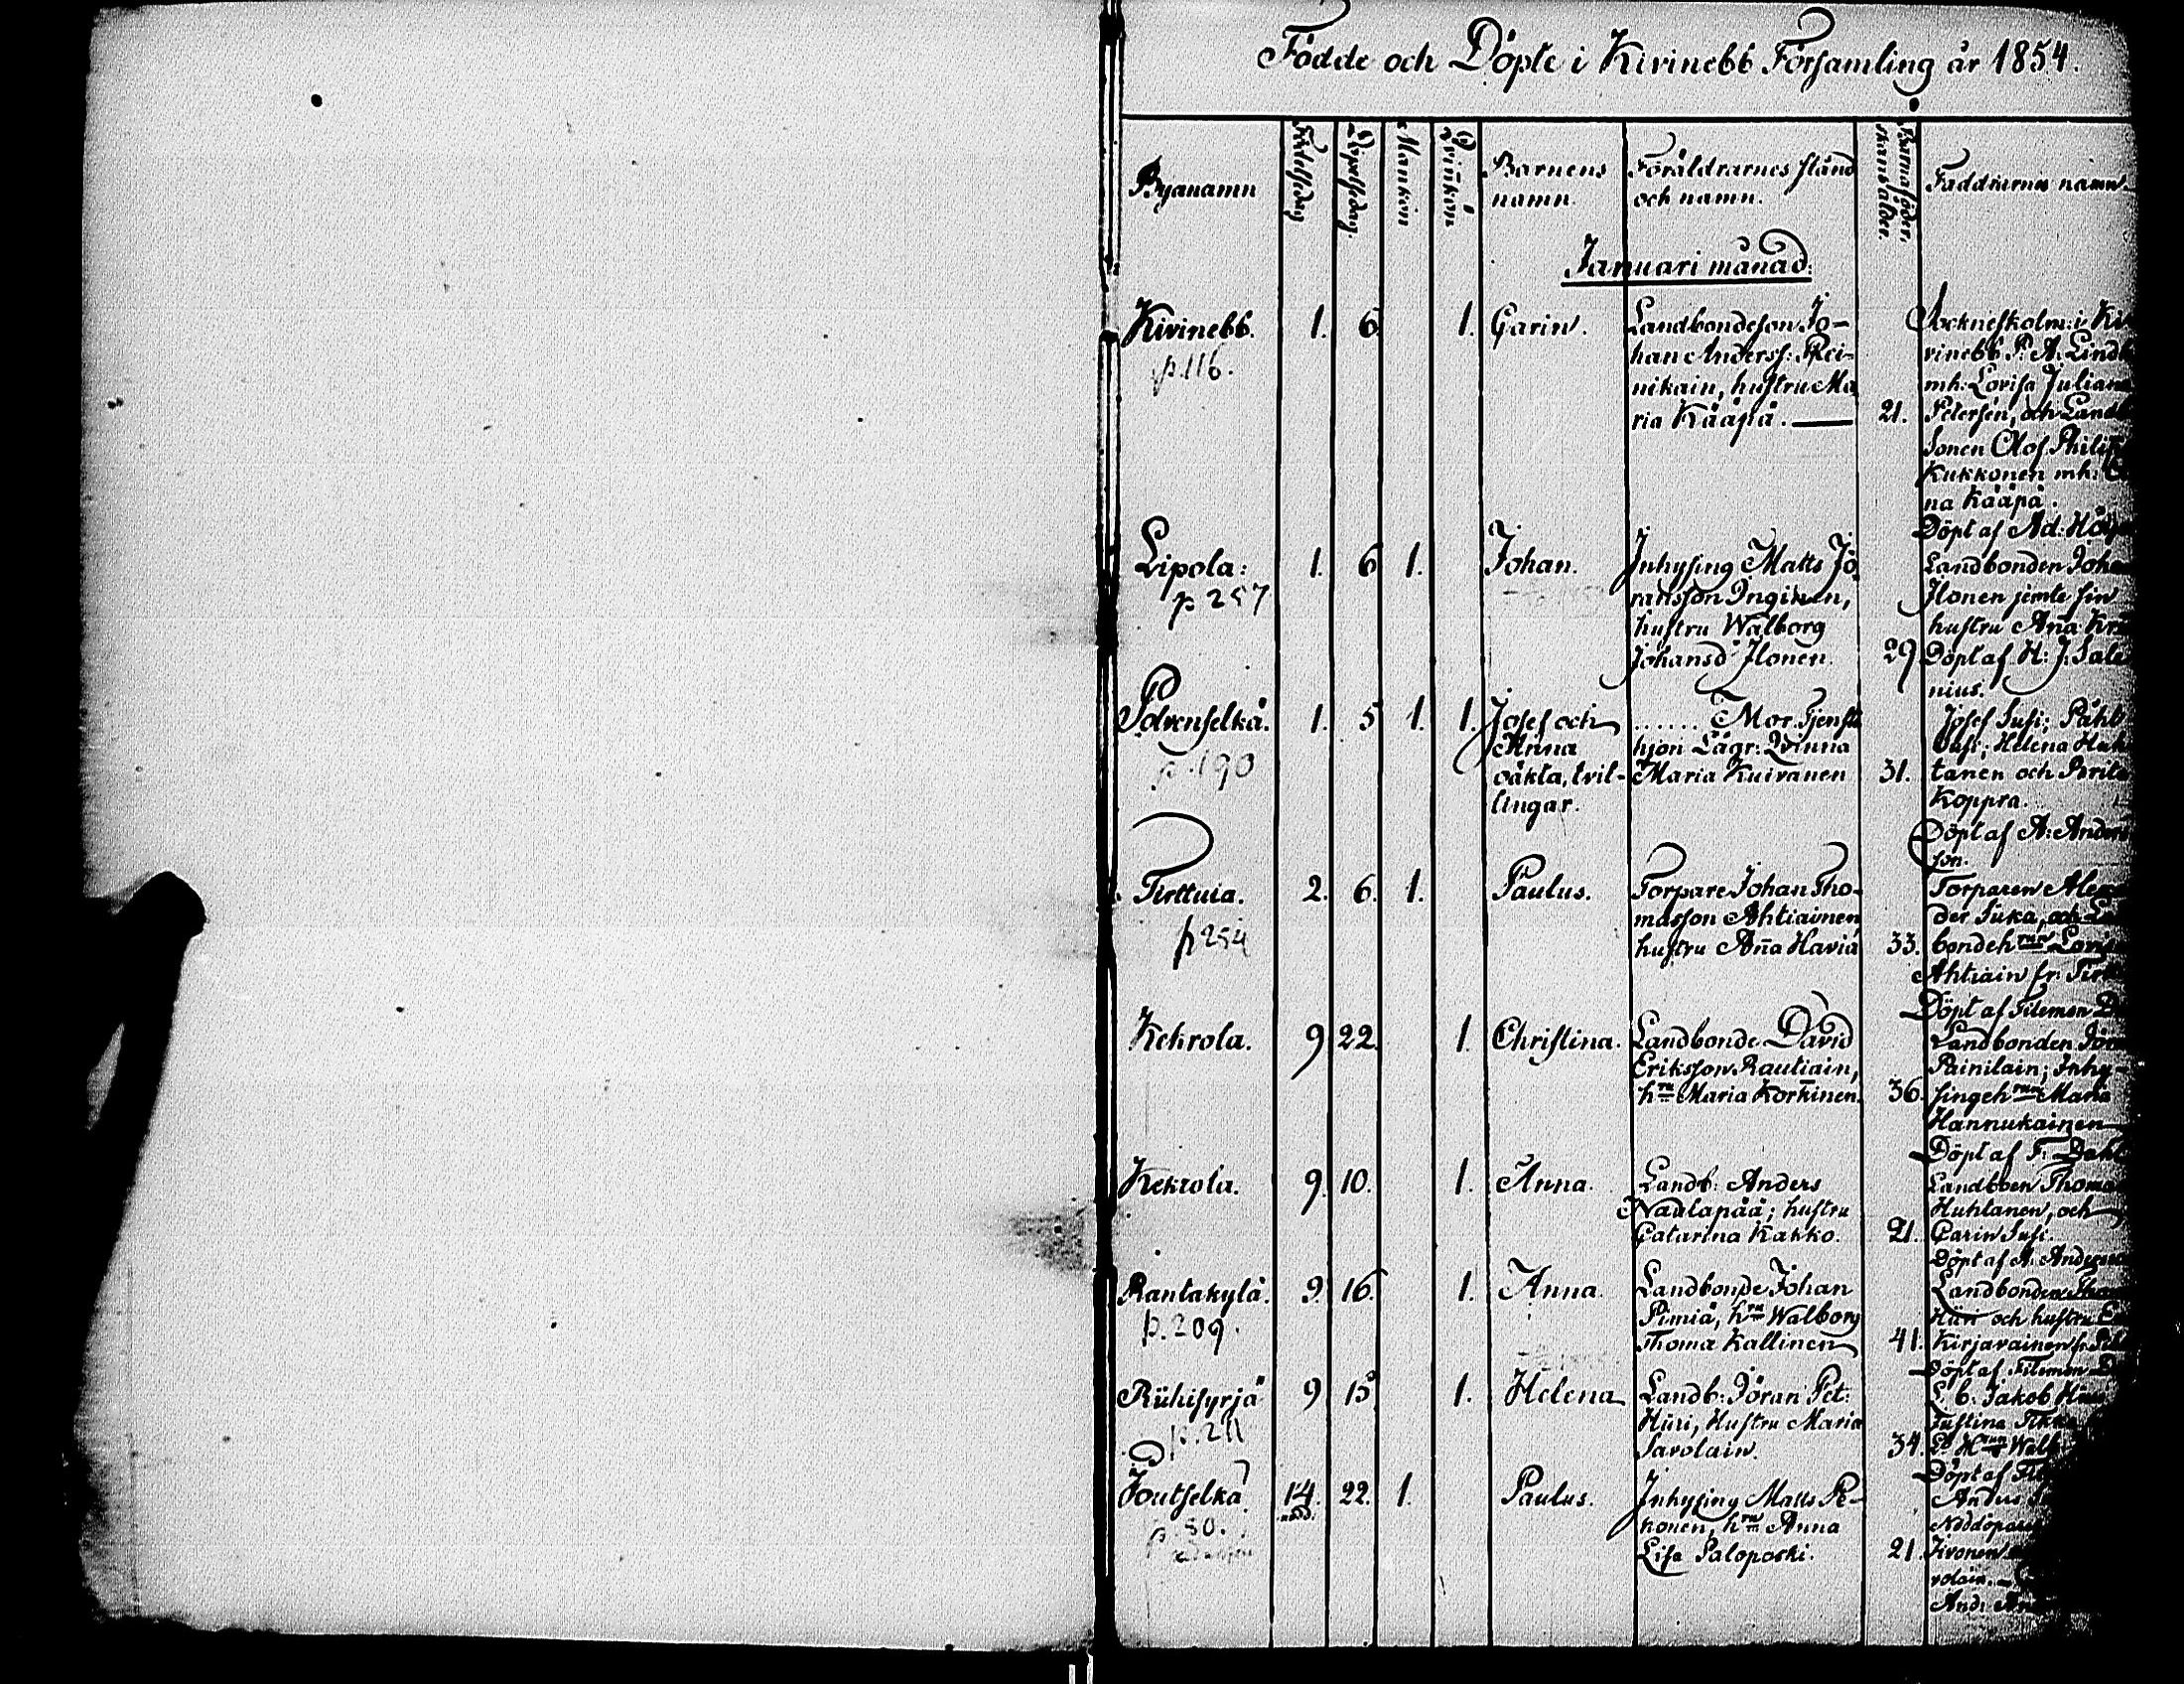 Födde och Döpte i Kivinebb Församling år 1854.
Byanamn
Födelsedag
Döpelsedag.
Mankön
Qvinkön
Barnens
namn.
Föräldrarnes stånd
och namn.
Barnaföder-
skans ålder.
Faddrarnes namn
Januari månad.
Kivinebb.
p. 116.
1. 6 1. Carin.
Landbondeson Jo-
han Anderss: Rei-
nikain, hustru Ma
ria Kääpä.
21.
Socknefkolm: i Ki
vinebb P: A: Lindh
mh: Lovisa Juliana
Petersen, och Landb
Sonen Olof Philip
Kukkonen mh:
na Kääpä.
Döpt af Ad:
Lipola:
p 257
1. 6 1. Johan.
Inhysing Matts Jö
ransson Inginen,
hustru Walborg
Johansd Ilonen.
29
Landbonden Joha
Ilonen jemte sin
hustru Aña Kri
Döpt af H: J: Sale
nius.
Polvenselkä.
p. 190
1. 5 1. 1. Josef och
Anna
oäkta, tvil-
lingar.
...... Mor. Tjenste
hjon Lägr: Qvinna
Maria Kuivanen
31.
Josef Susi; Påhl
Susi; Helena Huh
tanen och Brita
Koppra.
Döpt af A: Anders
son.
Tirttula.
p 254
2. 6. 1. Paulus.
Torpare Johan Tho-
masson Ahtiainen
hustru Aña Haviä
33.
Torparen Alex
der Suka, och La
bondehrun Loris
Ahtiain fr: Tirt
Döpt af Filemon D
Kekrola.
9 22. 1. Christina.
Landbonde David
Eriksson Rautiain,
hru Maria Korkinen.
36.
Landbonden Jöra
Painilain; Inhy-
singehrun Maria
Hannukainen
Döpt af F: Dahl
Kekrola.
9. 10. 1. Anna.
Landb: Anders
Nadlapää; hustru
Catarina Kakko.
21.
Landtboen Thomas
Huhtanen, och
Carin Susi.
Döpt af A: Anderson
Rantakylä.
p. 209.
9. 16. 1. Anna.
Landbonde Johan
Pimiä, hru Walborg
Thoma Kallinen
41.
Landbonden Thom
Huri och hustru
Kirjavainen fr:
Döpt af Filemon D
Rühisyrjä
p. 211
9 15 1. Helena
Landb: Jöran Pet:
Hüri, Hustru Maria
Savolain.
34.
L. b. Jakob
Justina Tikka
Lb Hrun Walb
Döpt af Fil
Joutselkä
p. 80.
14. 22. 1. Paulus.
nöd.
Inhysing Matts Pe-
konen, hru Anna
Lisa Saloposki.
21.
Anders
Nöddöpare
And: